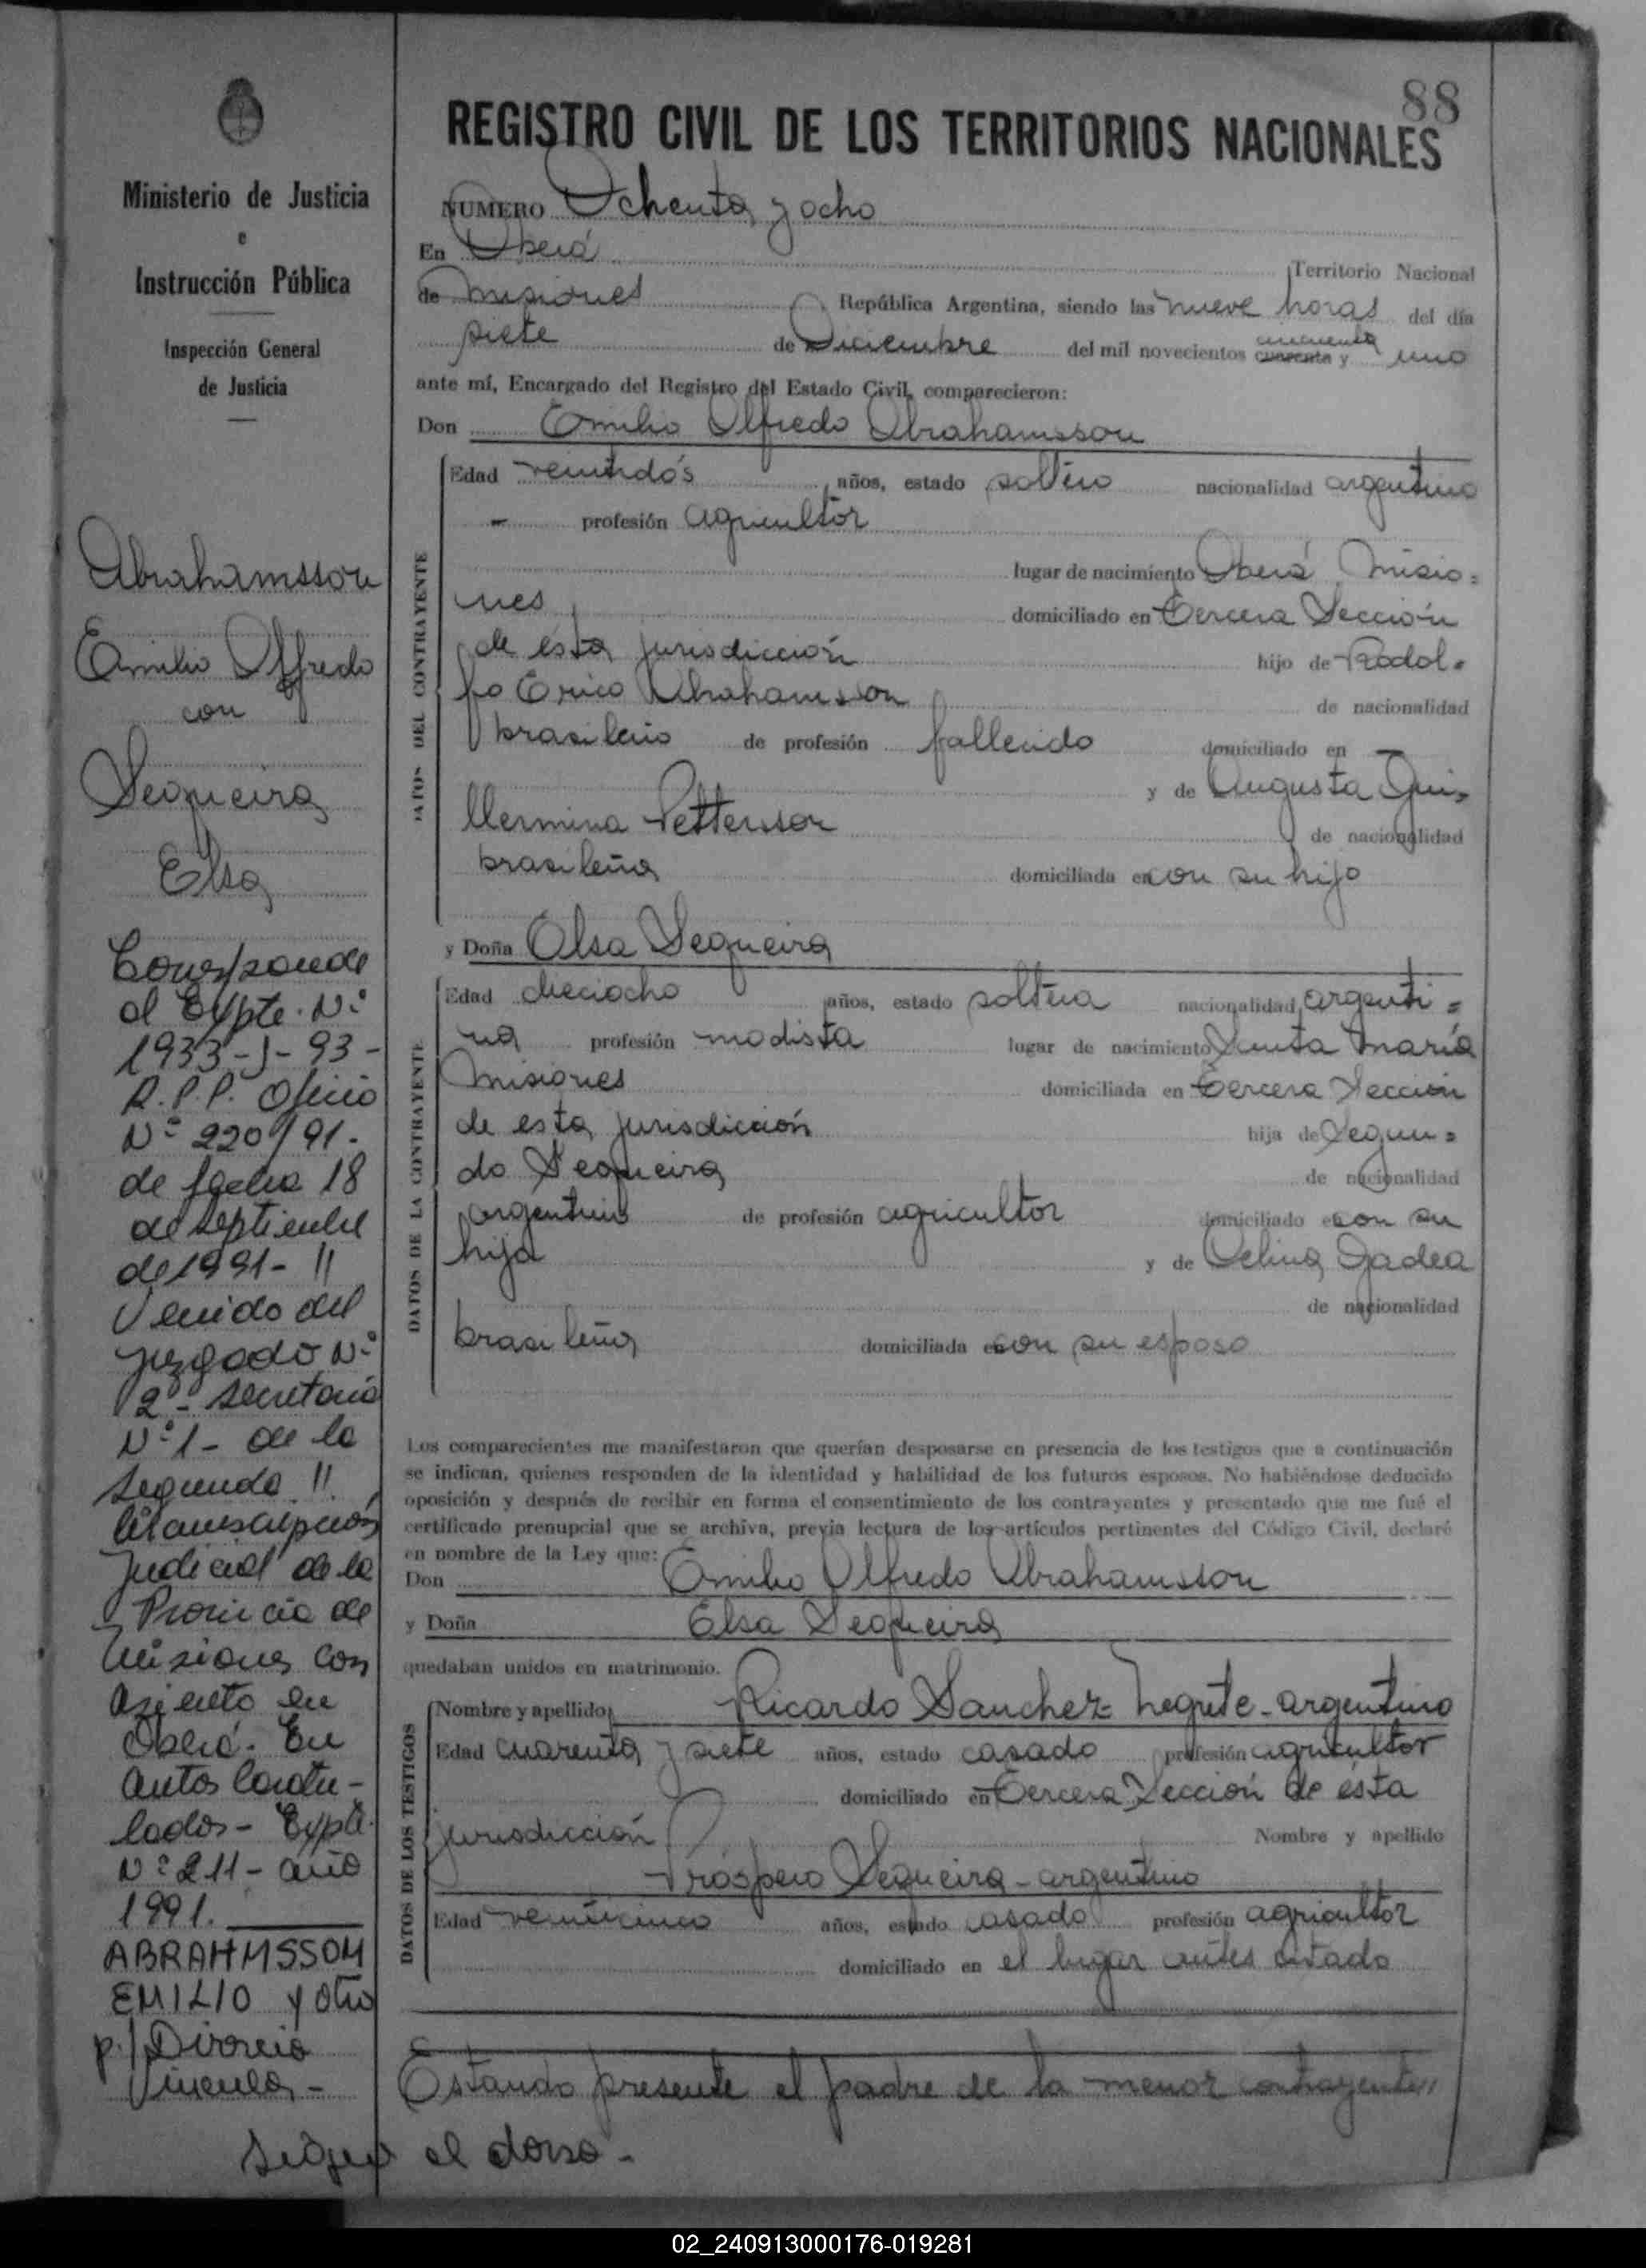 88
REGISTRO CIVIL DE LOS TERRITORIOS NACIONALES
Ministerio de Justicia
e
Instrucción Pública
Inspección General
de Justicia
Abrahamsson
Emilio Alfredo
con
Sequeira
Elsa
Corresponde
al Expte. Nº
1933-J-93-
R.P.P. Oficio
Nº 220/91-
de fecha 18
de septiembre
de 1991- //
Venido del
juzgado Nº
2º - Secretaria
Nº 1 - de la
Segunda //
Circunscripción
Judicial de la
Provincia de
Misiones con
asiento en
Oberá. En
autos Caratu-
lados - Expte.
Nº 211 - año
1991.
ABRAHMSSON
EMILIO y otro
p./Divorcio
Vincular -
NUMERO Ochenta y ocho
En Oberá Territorio Nacional
de Misiones República Argentina, siendo las nueve horas del día
siete de Diciembre del mil novecientos cuarenta y cincuenta uno
ante mí, Encargado del Registro del Estado Civil, comparecieron:
Don Emilio Alfredo Abrahamsson
DATOS DEL CONTRAYENTE
Edad veintidós años, estado soltero nacionalidad argentino
- profesión agricultor
lugar de nacimiento Oberá Misio=
nes domiciliado en Tercera Sección
de ésta jurisdicción hijo de Rodol=
fo Erico Abrahamsson de nacionalidad
brasileño de profesión fallecido domiciliado en —
y de Augusta Gui=
llermina Pettersson de nacionalidad
brasileña domiciliada en con su hijo
y Doña Elsa Sequeira
DATOS DE LA CONTRAYENTE
Edad dieciocho años, estado soltera nacionalidad argenti=
na profesión modista lugar de nacimiento Santa María
Misiones domiciliada en Tercera Sección
de esta jurisdicción hija de Segun=
do Sequeira de nacionalidad
argentino de profesión agricultor domiciliado en con su
hija y de Celina Gadea
de nacionalidad
brasileña domiciliada en con su esposo
Los comparecientes me manifestaron que querían desposarse en presencia de los testigos que a continuación
se indican, quienes responden de la identidad y habilidad de los futuros esposos. No habiéndose deducido
oposición y después de recibir en forma el consentimiento de los contrayentes y presentado que me fué el
certificado prenupcial que se archiva, previa lectura de los artículos pertinentes del Código Civil, declaré
en nombre de la Ley que:
Don Emilio Alfredo Abrahamsson
y Doña Elsa Sequeira
quedaban unidos en matrimonio.
DATOS DE LOS TESTIGOS
Nombre y apellido Ricardo Sanchez Negrete - argentino
Edad cuarenta y siete años, estado casado profesión agricultor
domiciliado en Tercera Sección de ésta
jurisdicción Nombre y apellido
Próspero Sequeira - argentino
Edad veinticinco años, estado casado profesión agricultor
domiciliado en el lugar antes citado
Estando presente el padre de la menor contrayente//
Sigue al dorso -
02_240913000176-019281